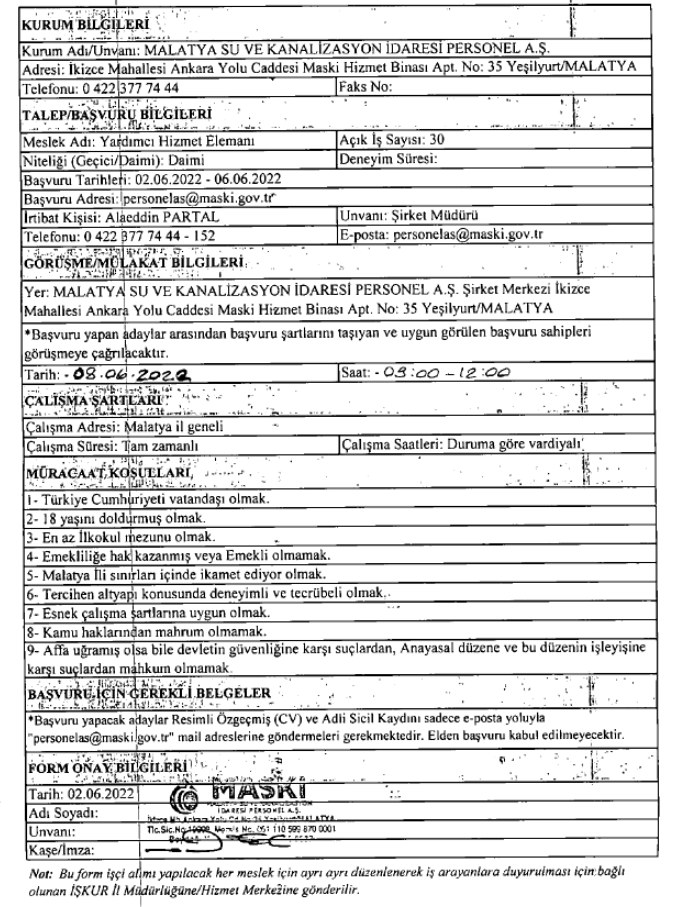 KURUM BİLGİLERİ
Kurum Adı/Unvanı: MALATYA SU VE KANALİZASYON İDARESİ PERSONEL A.Ş.
Adresi: İkizce Mahallesi Ankara Yolu Caddesi Maski Hizmet Binası Apt. No: 35 Yeşilyurt/MALATYA
Telefonu: 0 422 377 74 44 Faks No:
TALEP/BAŞVURU BİLGİLERİ
Meslek Adı: Yardımcı Hizmet Elemanı Açık İş Sayısı: 30
Niteliği (Geçici/Daimi): Daimi Deneyim Süresi:
Başvuru Tarihleri: 02.06.2022 - 06.06.2022
Başvuru Adresi: personelas@maski.gov.tr
İrtibat Kişisi: Alaeddin PARTAL Unvanı: Şirket Müdürü
Telefonu: 0 422 377 74 44 - 152 E-posta: personelas@maski.gov.tr
GÖRÜŞME/MÜLAKAT BİLGİLERİ
Yer: MALATYA SU VE KANALİZASYON İDARESİ PERSONEL A.Ş. Şirket Merkezi İkizce
Mahallesi Ankara Yolu Caddesi Maski Hizmet Binası Apt. No: 35 Yeşilyurt/MALATYA
*Başvuru yapan adaylar arasından başvuru şartlarını taşıyan ve uygun görülen başvuru sahipleri
görüşmeye çağrılacaktır.
Tarih: - 08.06.2022 Saat: - 09:00 - 12:00
ÇALIŞMA ŞARTLARI
Çalışma Adresi: Malatya il geneli
Çalışma Süresi: Tam zamanlı Çalışma Saatleri: Duruma göre vardiyalı
MÜRACAAT KOŞULLARI
1- Türkiye Cumhuriyeti vatandaşı olmak.
2- 18 yaşını doldurmuş olmak.
3- En az İlkokul mezunu olmak.
4- Emekliliğe hak kazanmış veya Emekli olmamak.
5- Malatya İli sınırları içinde ikamet ediyor olmak.
6- Tercihen altyapı konusunda deneyimli ve tecrübeli olmak.
7- Esnek çalışma şartlarına uygun olmak.
8- Kamu haklarından mahrum olmamak.
9- Affa uğramış olsa bile devletin güvenliğine karşı suçlardan, Anayasal düzene ve bu düzenin işleyişine
karşı suçlardan mahkum olmamak.
BAŞVURU İÇİN GEREKLİ BELGELER
*Başvuru yapacak adaylar Resimli Özgeçmiş (CV) ve Adli Sicil Kaydını sadece e-posta yoluyla
"personelas@maski.gov.tr" mail adreslerine göndermeleri gerekmektedir. Elden başvuru kabul edilmeyecektir.
FORM ONAY BİLGİLERİ
Tarih: 02.06.2022 MASKİ
İDARESİ PERSONEL A.Ş.
Adı Soyadı:
Unvanı:
Kaşe/İmza:
Not: Bu form işçi alımı yapılacak her meslek için ayrı ayrı düzenlenerek iş arayanlara duyurulması için bağlı
olunan İŞKUR İl Müdürlüğüne/Hizmet Merkezine gönderilir.